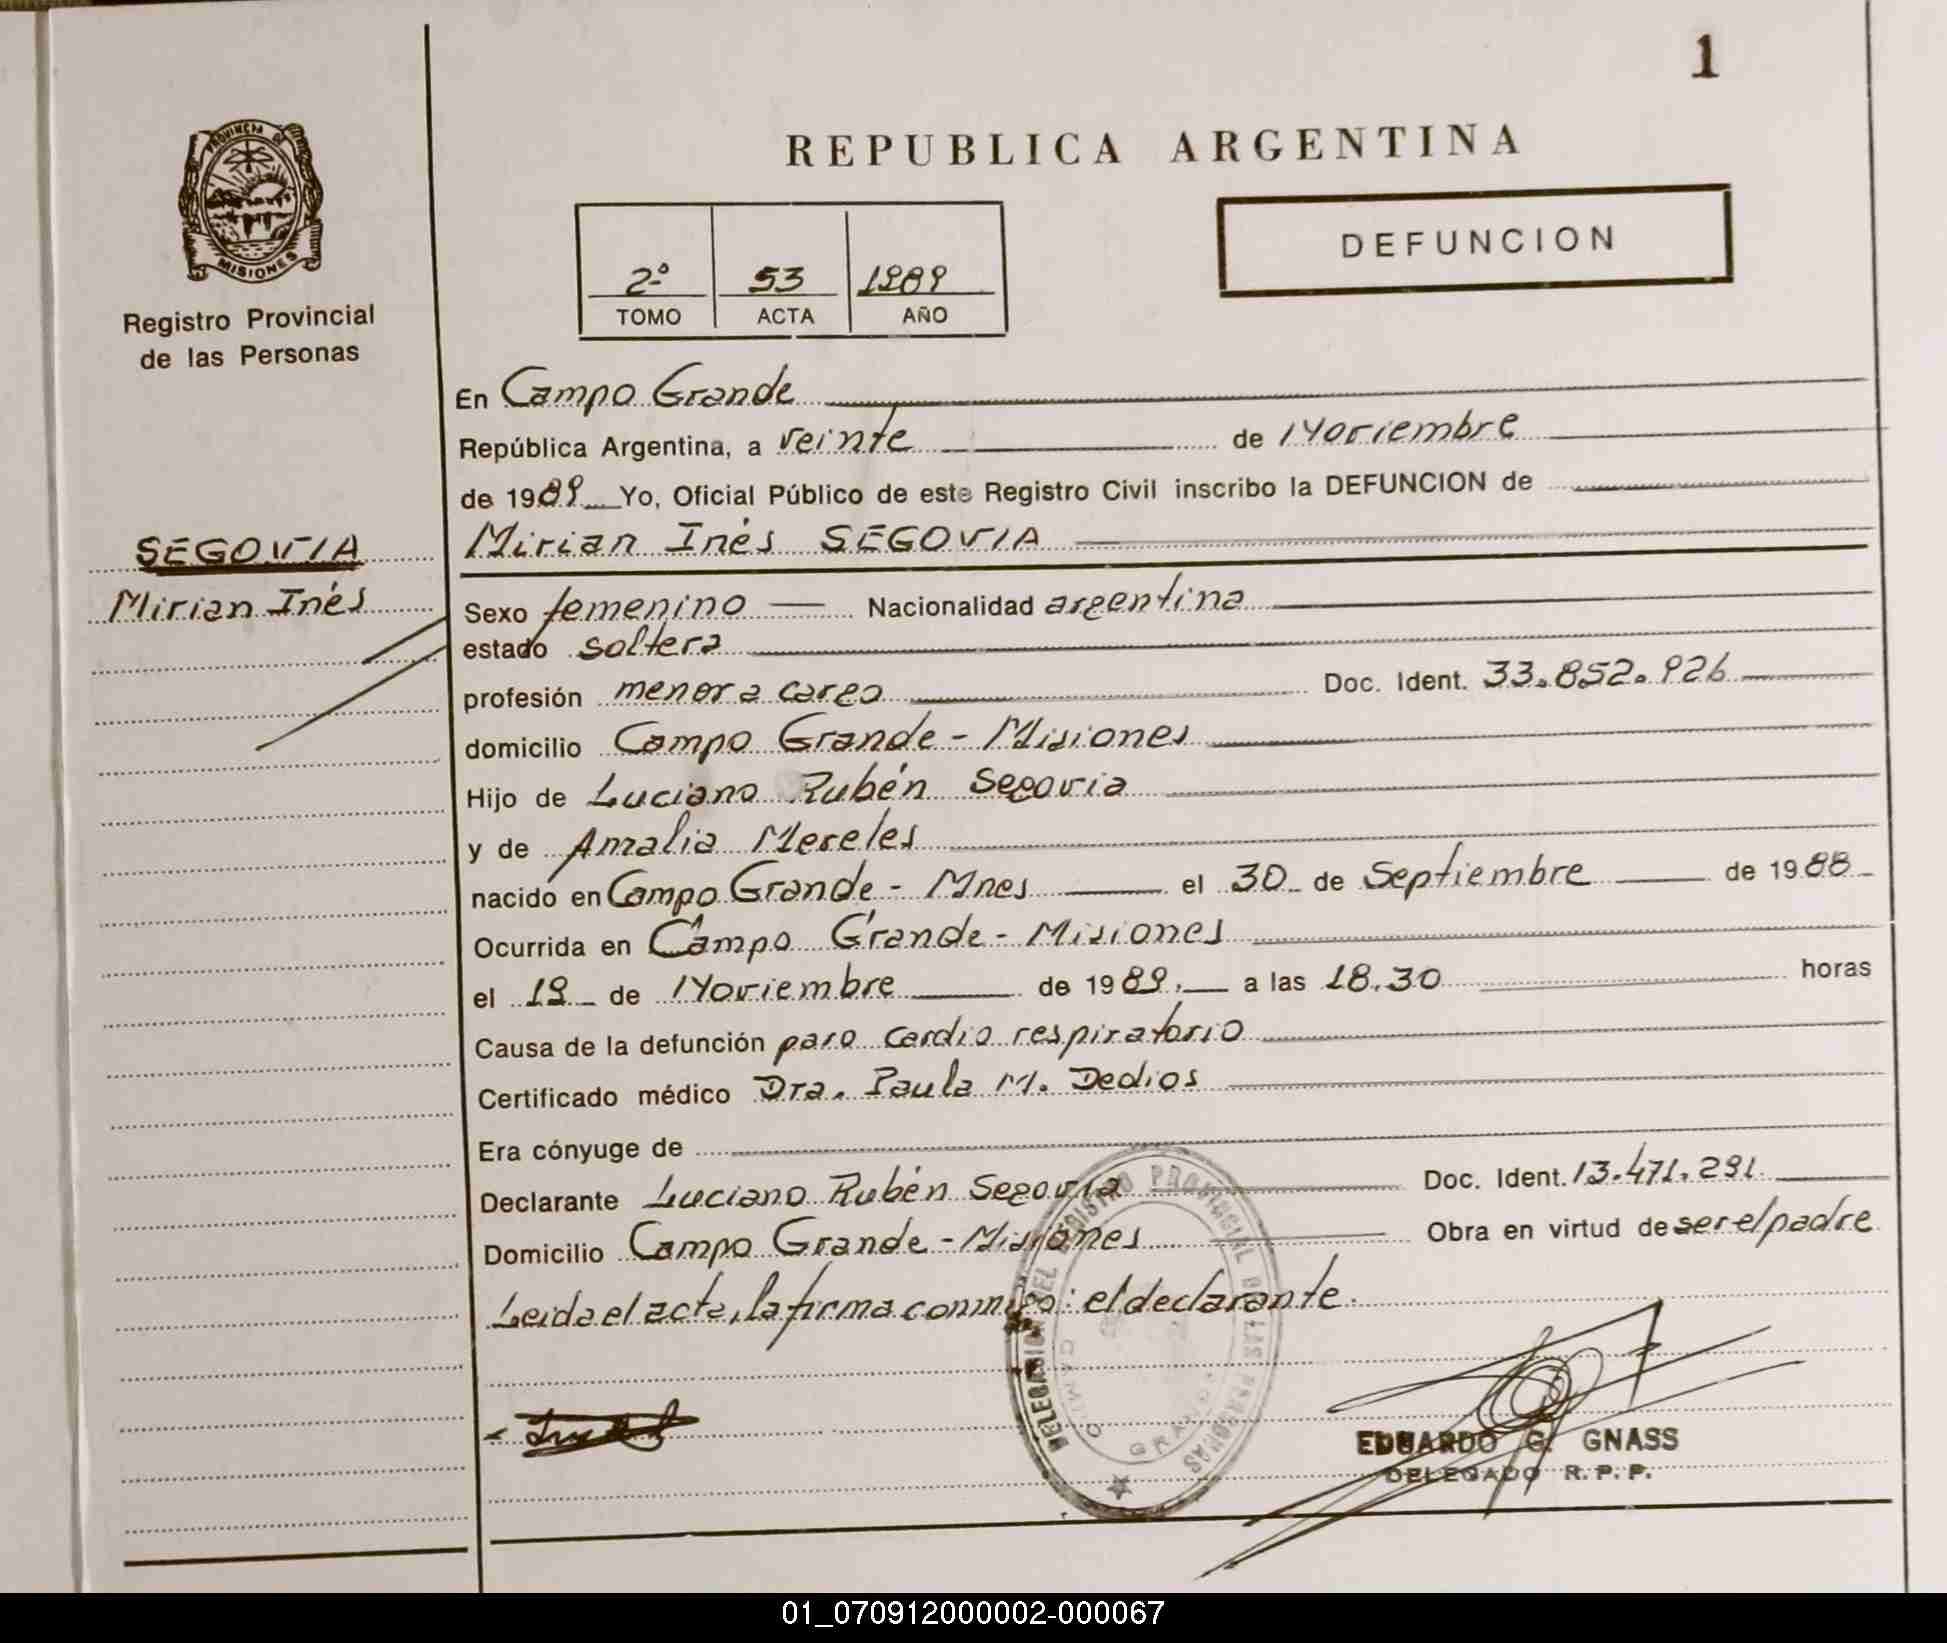 1
PROVINCIA DE
MISIONES
Registro Provincial
de las Personas
REPUBLICA ARGENTINA
2º 53 1989
TOMO ACTA AÑO
DEFUNCION
SEGOVIA
Mirian Inés
En Campo Grande
República Argentina, a veinte de Noviembre
de 1989 Yo, Oficial Público de este Registro Civil inscribo la DEFUNCION de
Mirian Inés SEGOVIA
Sexo femenino Nacionalidad argentina
estado soltera
profesión menor a cargo Doc. Ident. 33.852.926
domicilio Campo Grande - Misiones
Hijo de Luciano Rubén Segovia
y de Amalia Mereles
nacido en Campo Grande - Mnes el 30 de Septiembre de 1988
Ocurrida en Campo Grande - Misiones
el 19 de Noviembre de 1989. a las 18.30 horas
Causa de la defunción paro cardio respiratorio
Certificado médico Dra. Paula M. Dedios
Era cónyuge de
Declarante Luciano Rubén Segovia Doc. Ident. 13.471.291
Domicilio Campo Grande - Misiones Obra en virtud de ser el padre
Leida el acta, la firma conmigo: el declarante.
DELEGACION DEL REGISTRO PROVINCIAL DE LAS PERSONAS
CAMPO GRANDE
EDUARDO G. GNASS
DELEGADO R. P. P.
01_070912000002-000067